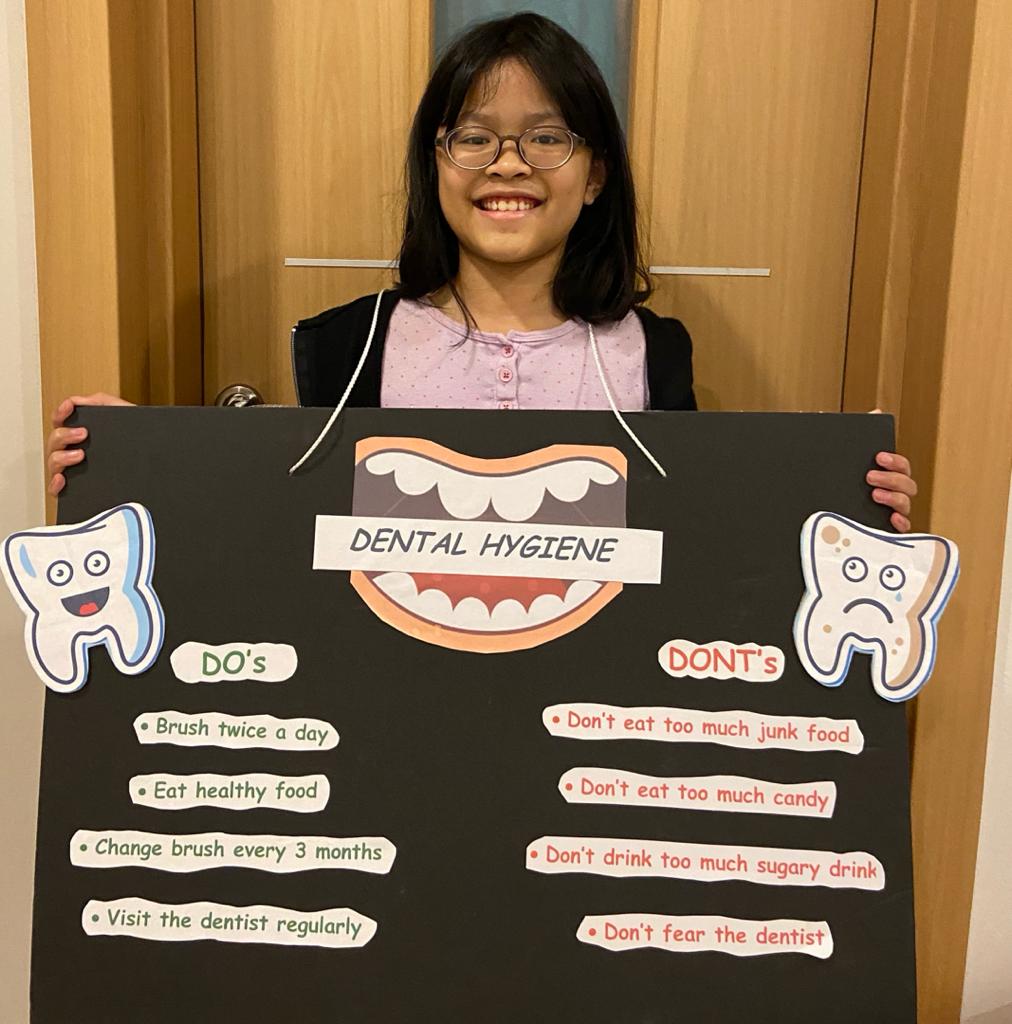 DENTAL HYGIENE
DO's
• Brush twice a day
• Eat healthy food
• Change brush every 3 months
• Visit the dentist regularly
DONT's
• Don't eat too much junk food
• Don't eat too much candy
• Don't drink too much sugary drink
• Don't fear the dentist